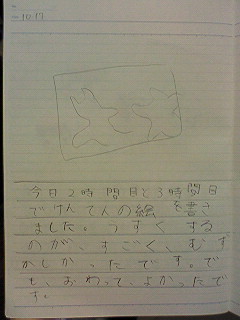 10.17
今日2時間目と3時間目
でけんてんの絵を書き
ました。うすくする
のが、すごく、むず
かしかったです。で
も、おわって、よかったで
す。